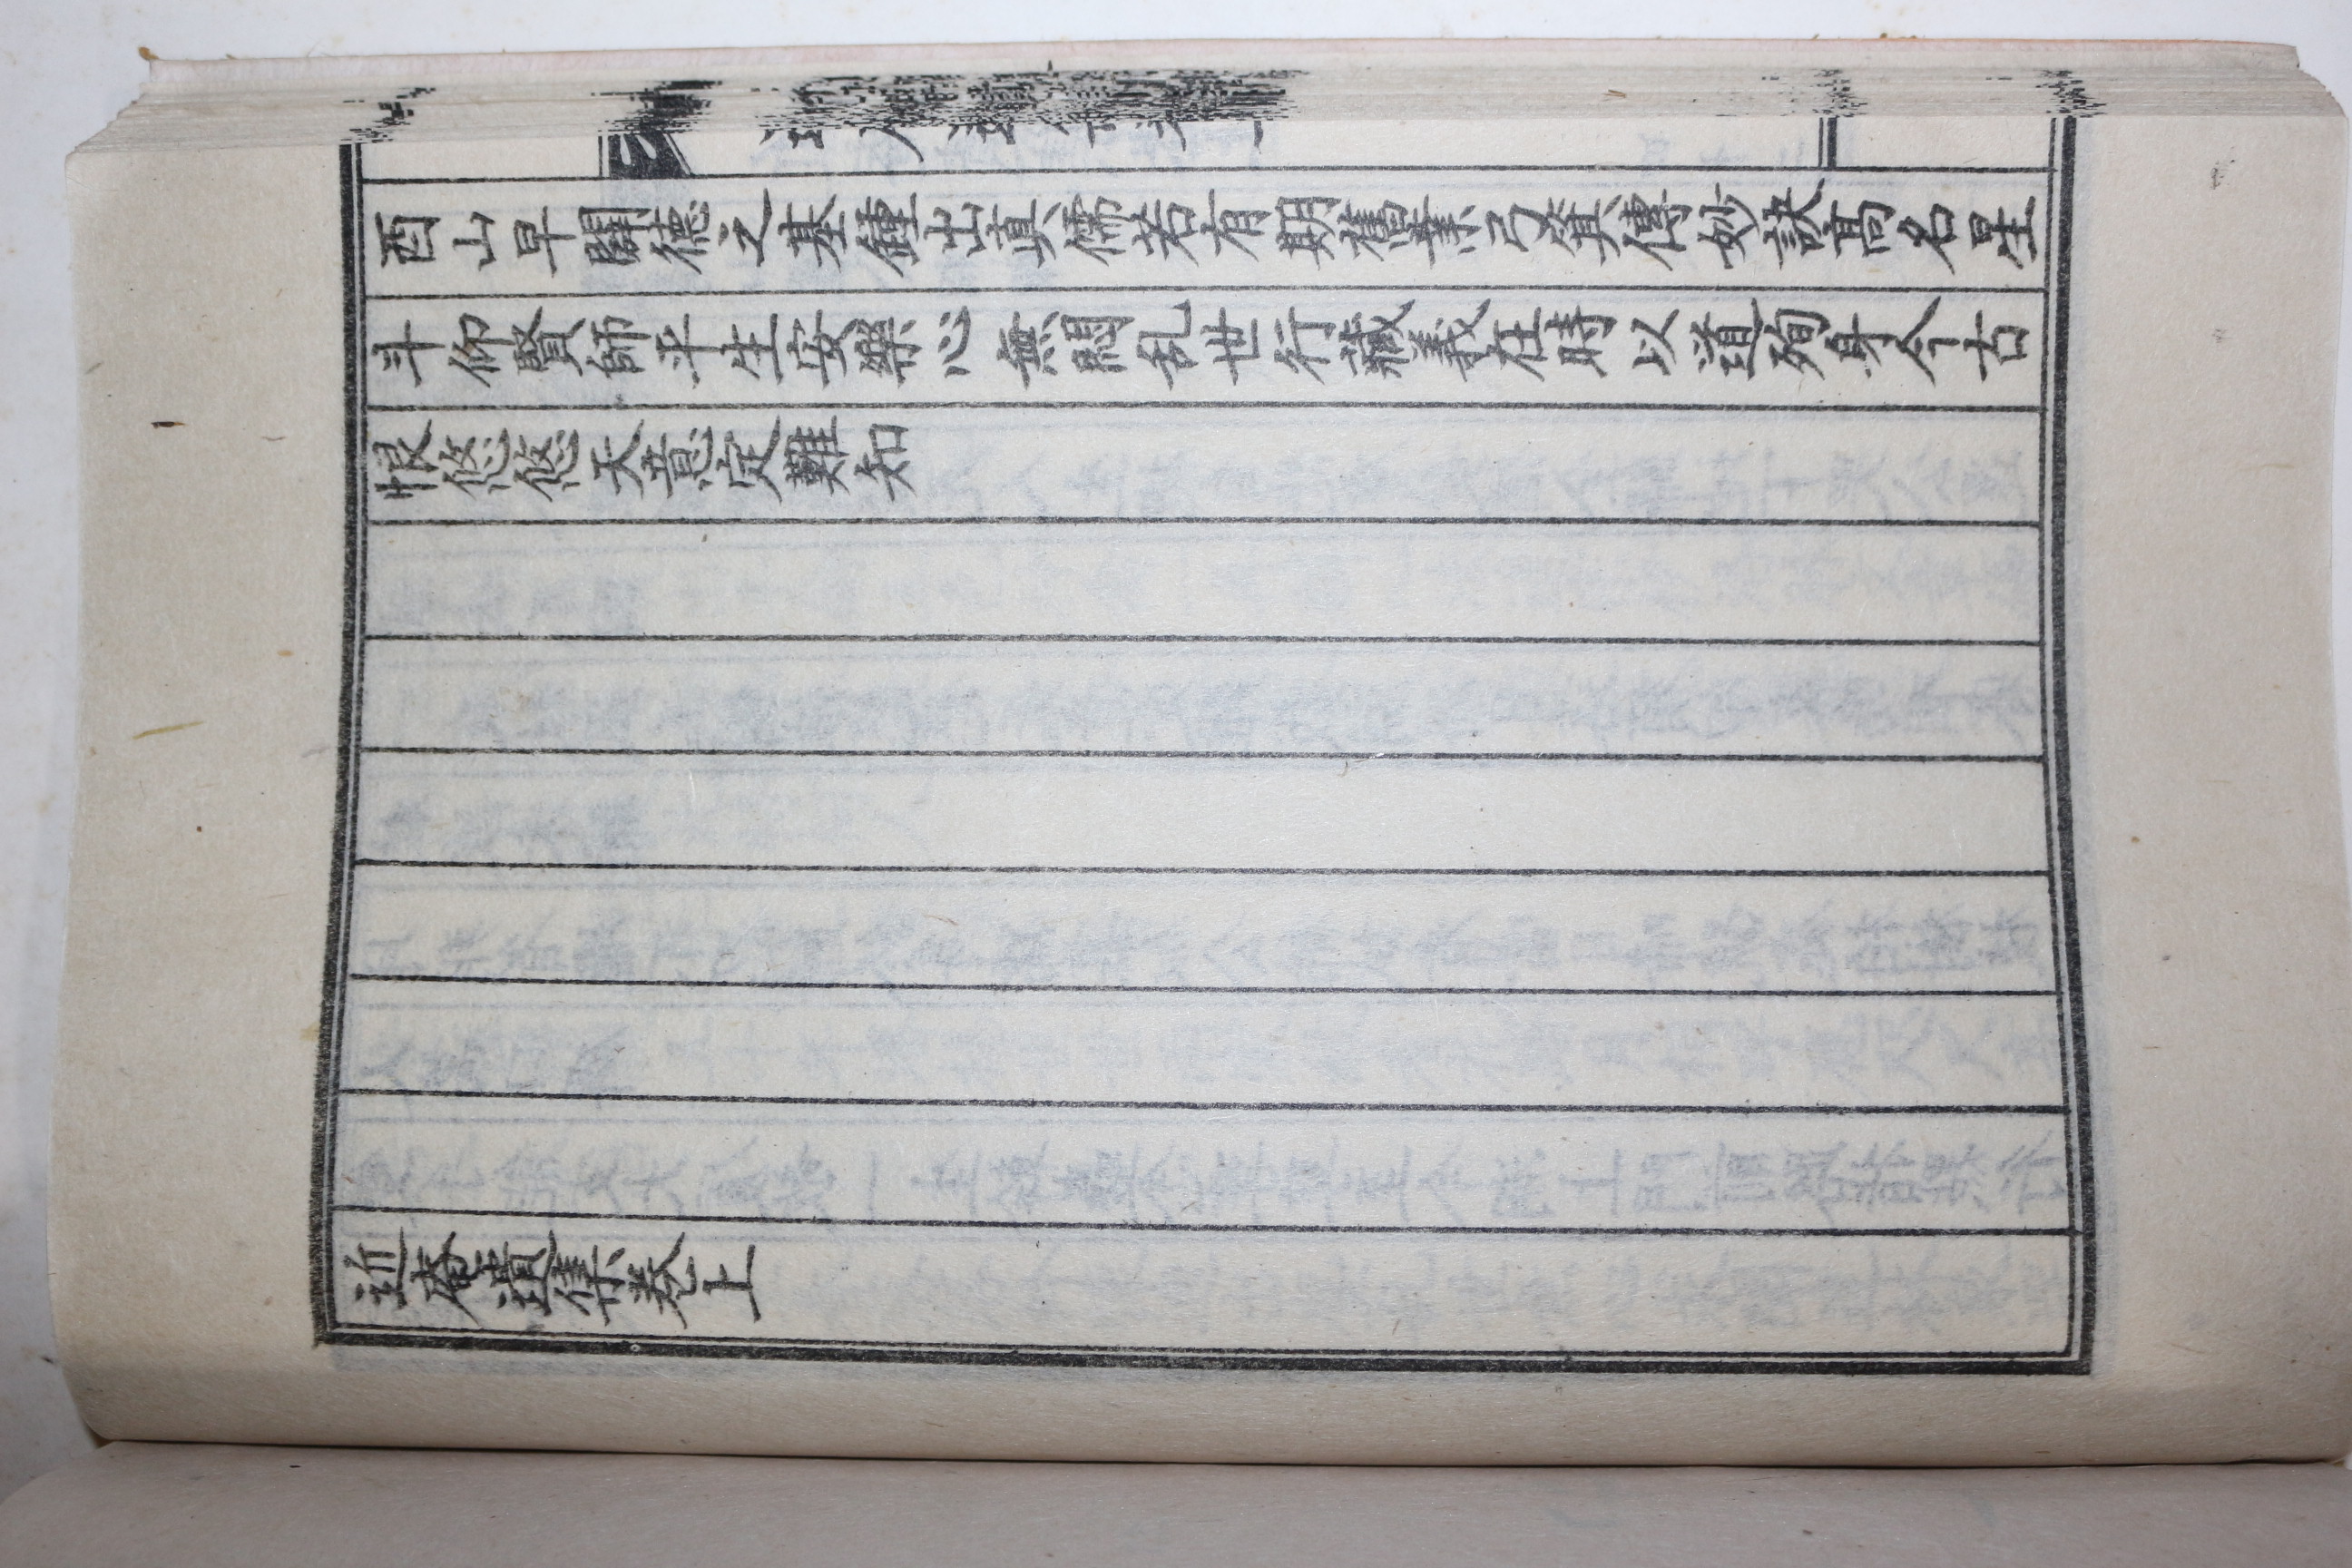 酉山早闢德之基鍾出眞儒若有期舊業弓箕傳妙訣高名星
斗仰賢師平生安樂心無悶乱世行藏義在時以道殉身今古
恨悠悠天意定難知
近庵遺集卷上